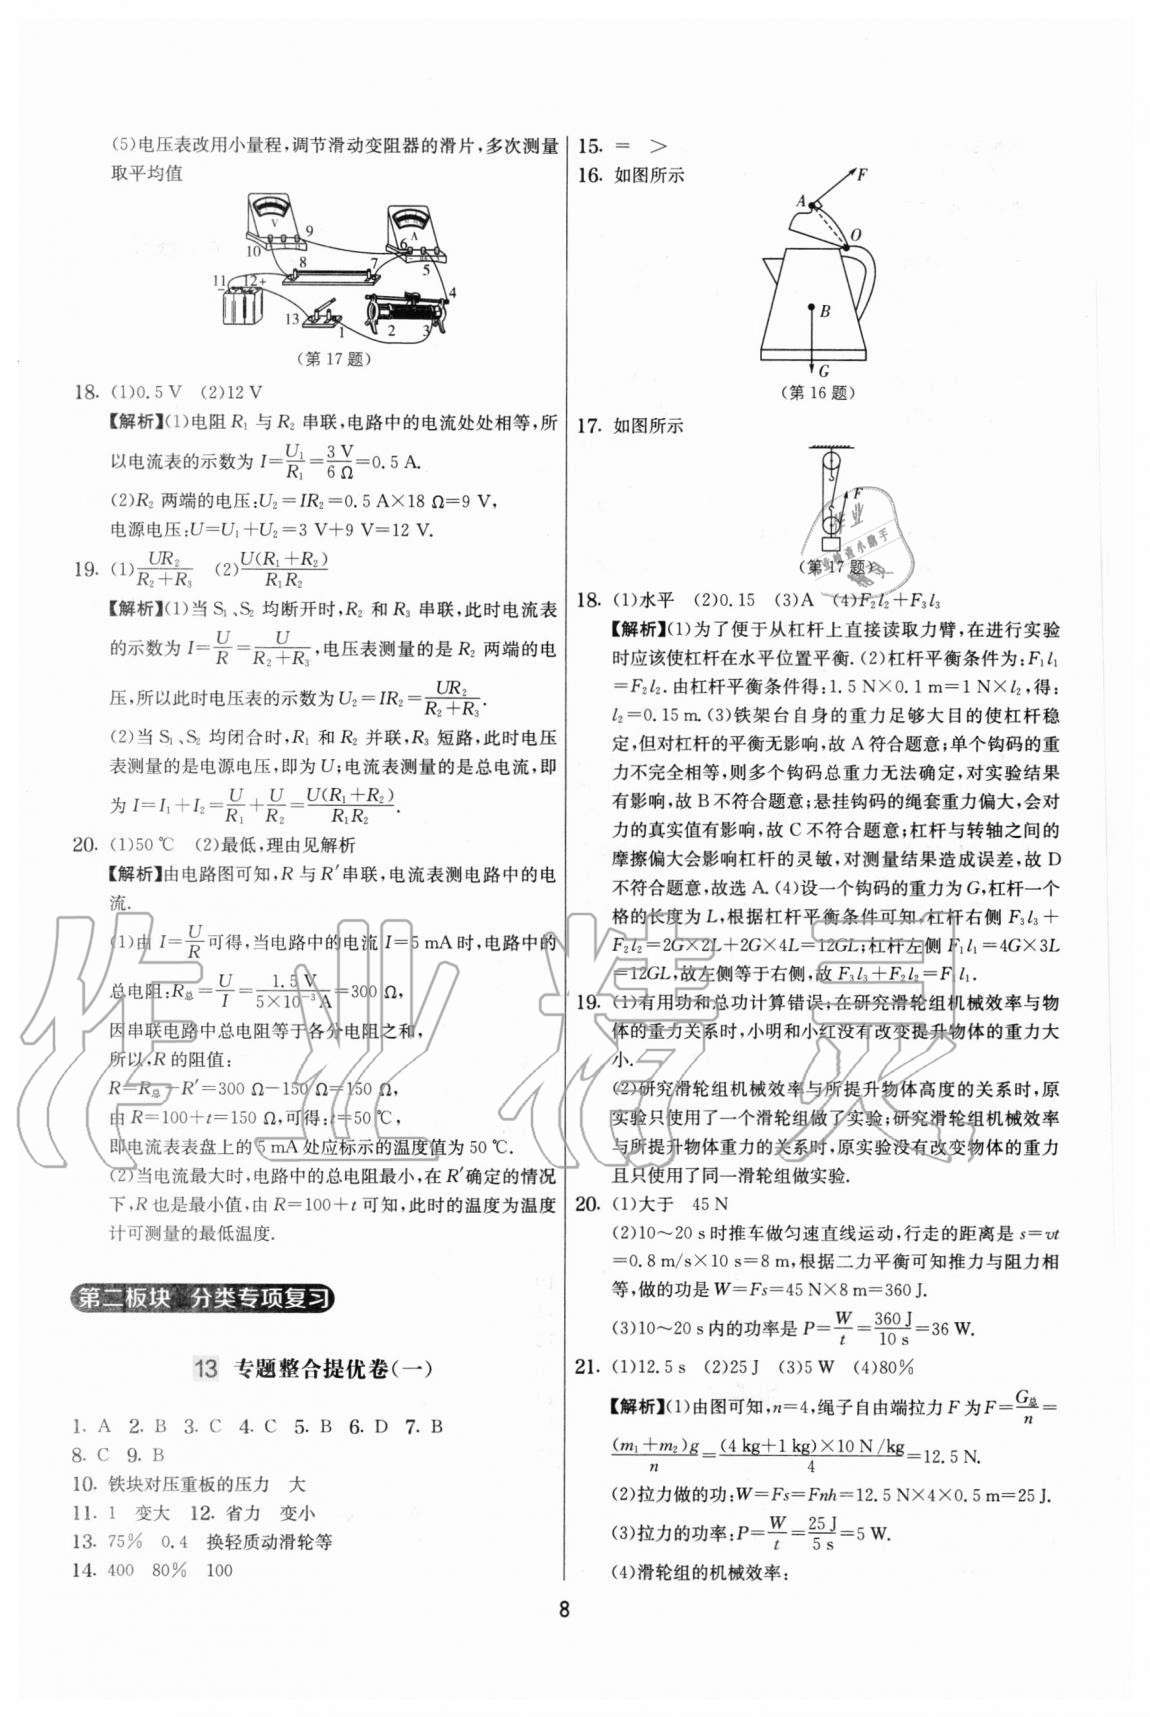 (5)电压表改用小量程,调节滑动变阻器的滑片,多次测量
取平均值
V
A
9
10
6
5
8
7
11
12+
4
13
1
2
3
(第 17 题)
18. (1)0.5 V (2)12 V
【解析】(1)电阻 R₁ 与 R₂ 串联,电路中的电流处处相等,所
以电流表的示数为 I=U₁/R₁=3 V/6 Ω=0.5 A.
(2)R₂ 两端的电压:U₂=IR₂=0.5 A×18 Ω=9 V,
电源电压:U=U₁+U₂=3 V+9 V=12 V.
19. (1)UR₂/(R₂+R₃) (2)U(R₁+R₂)/(R₁R₂)
【解析】(1)当 S₁、S₂ 均断开时,R₂ 和 R₃ 串联,此时电流表
的示数为 I=U/R=U/(R₂+R₃),电压表测量的是 R₂ 两端的电
压,所以此时电压表的示数为 U₂=IR₂=UR₂/(R₂+R₃).
(2)当 S₁、S₂ 均闭合时,R₁ 和 R₂ 并联,R₃ 短路,此时电压
表测量的是电源电压,即为 U;电流表测量的是总电流,即
为 I=I₁+I₂=U/R₁+U/R₂=U(R₁+R₂)/(R₁R₂).
20. (1)50 ℃ (2)最低,理由见解析
【解析】由电路图可知,R 与 R′串联,电流表测电路中的电
流.
(1)由 I=U/R可得,当电路中的电流 I=5 mA 时,电路中的
总电阻:R总=U/I=1.5 V/(5×10⁻³A)=300 Ω,
因串联电路中总电阻等于各分电阻之和,
所以,R 的阻值:
R=R总−R′=300 Ω−150 Ω=150 Ω,
由 R=100+t=150 Ω,可得:t=50 ℃,
即电流表表盘上的 5 mA 处应标示的温度值为 50 ℃.
(2)当电流最大时,电路中的总电阻最小,在 R′确定的情况
下,R 也是最小值,由 R=100+t 可知,此时的温度为温度
计可测量的最低温度.
第二板块 分类专项复习
13 专题整合提优卷(一)
1. A 2. B 3. C 4. C 5. B 6. D 7. B
8. C 9. B
10. 铁块对压重板的压力 大
11. 1 变大 12. 省力 变小
13. 75% 0.4 换轻质动滑轮等
14. 400 80% 100
15. = >
16. 如图所示
A
F
O
B
G
(第 16 题)
17. 如图所示
F
(第 17 题)
18. (1)水平 (2)0.15 (3)A (4)F₂l₂+F₃l₃
【解析】(1)为了便于从杠杆上直接读取力臂,在进行实验
时应该使杠杆在水平位置平衡.(2)杠杆平衡条件为:F₁l₁
=F₂l₂.由杠杆平衡条件得:1.5 N×0.1 m=1 N×l₂,得:
l₂=0.15 m.(3)铁架台自身的重力足够大目的使杠杆稳
定,但对杠杆的平衡无影响,故 A 符合题意;单个钩码的重
力不完全相等,则多个钩码总重力无法确定,对实验结果
有影响,故 B 不符合题意;悬挂钩码的绳套重力偏大,会对
力的真实值有影响,故 C 不符合题意;杠杆与转轴之间的
摩擦偏大会影响杠杆的灵敏,对测量结果造成误差,故 D
不符合题意,故选 A.(4)设一个钩码的重力为 G,杠杆一个
格的长度为 L,根据杠杆平衡条件可知,杠杆右侧 F₃l₃+
F₂l₂=2G×2L+2G×4L=12GL;杠杆左侧 F₁l₁=4G×3L
=12GL,故左侧等于右侧,故 F₃l₃+F₂l₂=F₁l₁.
19. (1)有用功和总功计算错误;在研究滑轮组机械效率与物
体的重力关系时,小明和小红没有改变提升物体的重力大
小.
(2)研究滑轮组机械效率与所提升物体高度的关系时,原
实验只使用了一个滑轮组做了实验;研究滑轮组机械效率
与所提升物体重力的关系时,原实验没有改变物体的重力
且只使用了同一滑轮组做实验.
20. (1)大于 45 N
(2)10~20 s 时推车做匀速直线运动,行走的距离是 s=vt
=0.8 m/s×10 s=8 m,根据二力平衡可知推力与阻力相
等,做的功是 W=Fs=45 N×8 m=360 J.
(3)10~20 s 内的功率是 P=W/t=360 J/10 s=36 W.
21. (1)12.5 s (2)25 J (3)5 W (4)80%
【解析】(1)由图可知,n=4,绳子自由端拉力 F 为 F=G总/n=
(m₁+m₂)g/n=(4 kg+1 kg)×10 N/kg/4=12.5 N.
(2)拉力做的功:W=Fs=Fnh=12.5 N×4×0.5 m=25 J.
(3)拉力的功率:P=W/t=25 J/5 s=5 W.
(4)滑轮组的机械效率:
8
作业精灵